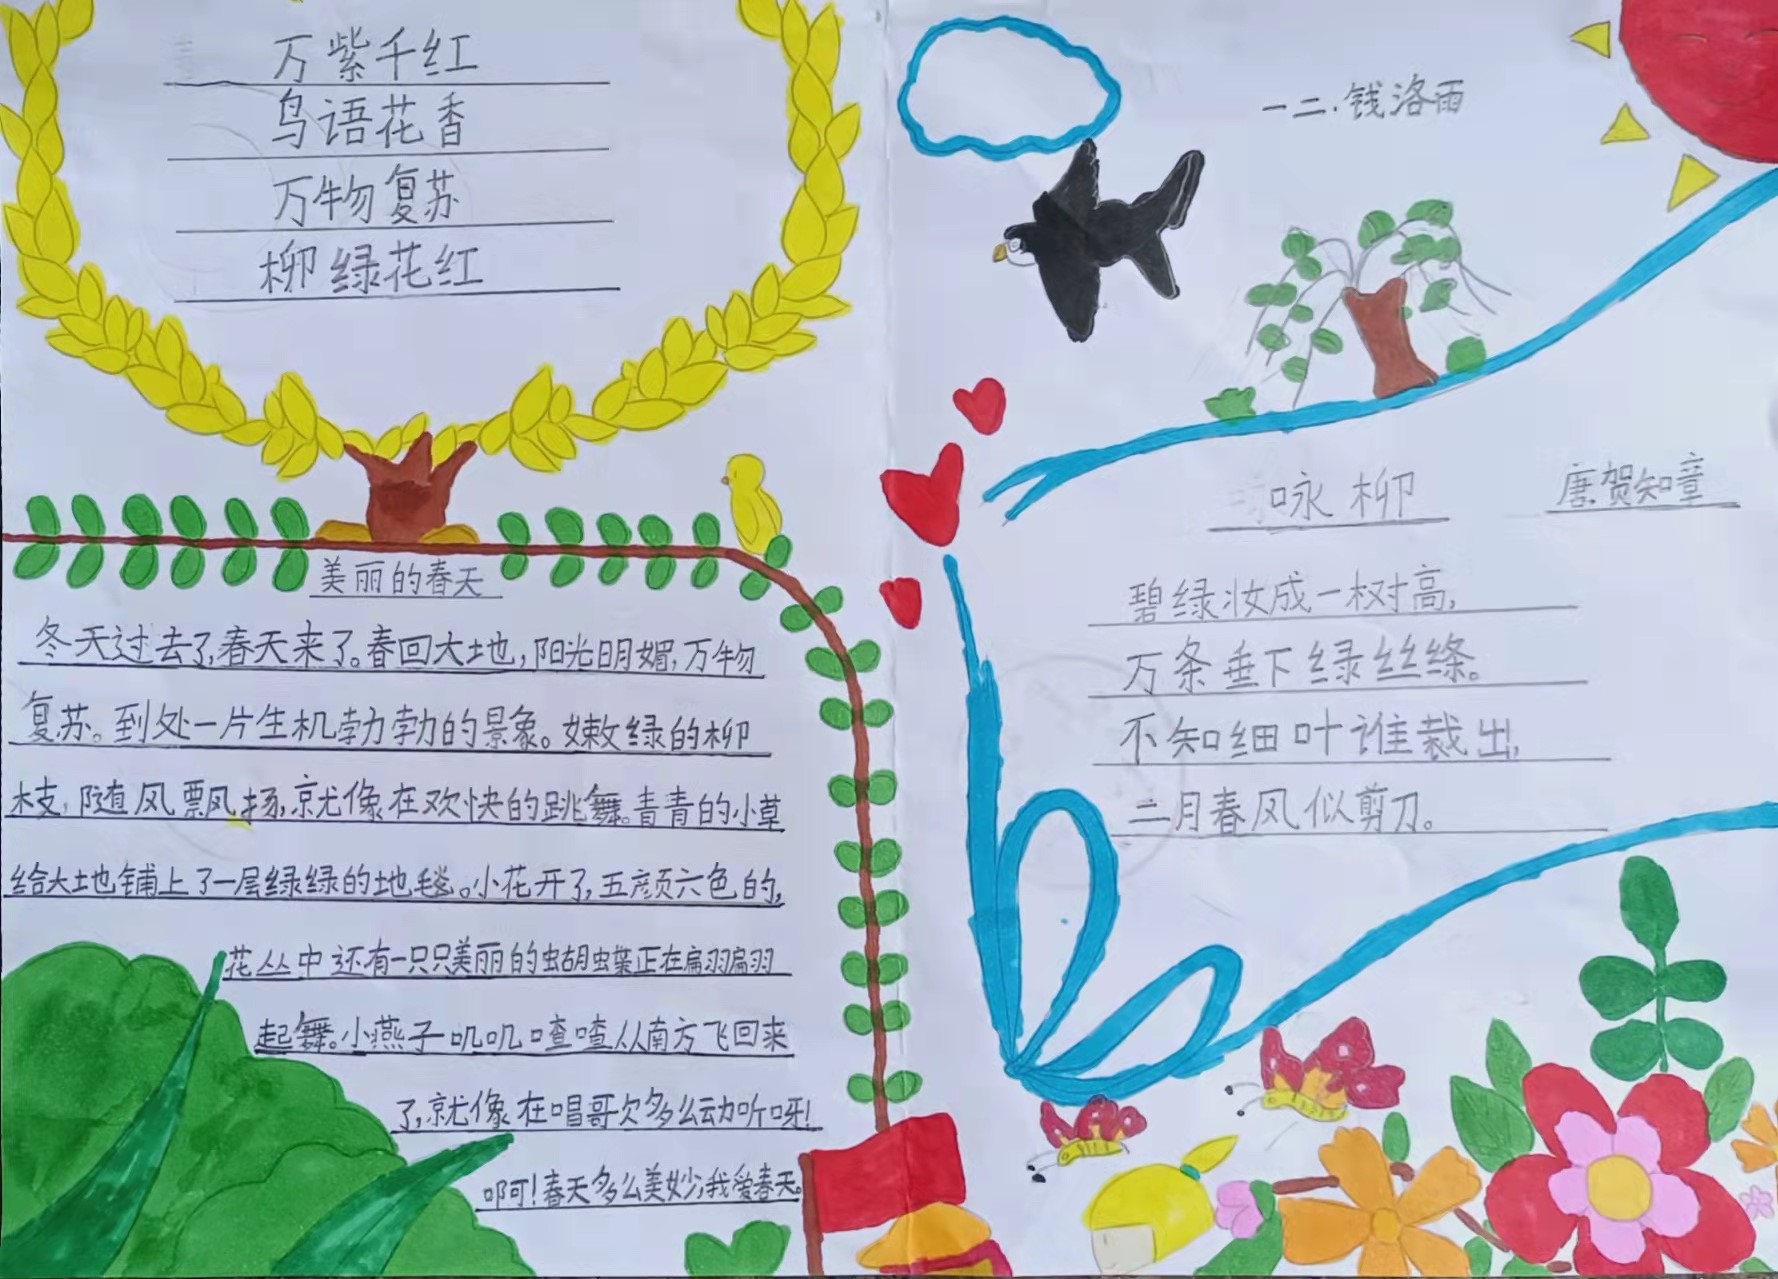 万紫千红
鸟语花香
万物复苏
柳绿花红
美丽的春天
冬天过去了,春天来了。春回大地,阳光明媚,万物
复苏。到处一片生机勃勃的景象。嫩绿的柳
枝,随风飘扬,就像在欢快的跳舞。青青的小草
给大地铺上了一层绿绿的地毯。小花开了,五颜六色的,
花丛中还有一只只美丽的蝴蝶正在翩翩
起舞。小燕子叽叽喳喳从南方飞回来
了,就像在唱歌多么动听呀!
啊!春天多么美妙,我爱春天。
一二.钱洛雨
咏柳
唐贺知章
碧绿妆成一树高,
万条垂下绿丝绦。
不知细叶谁裁出,
二月春风似剪刀。